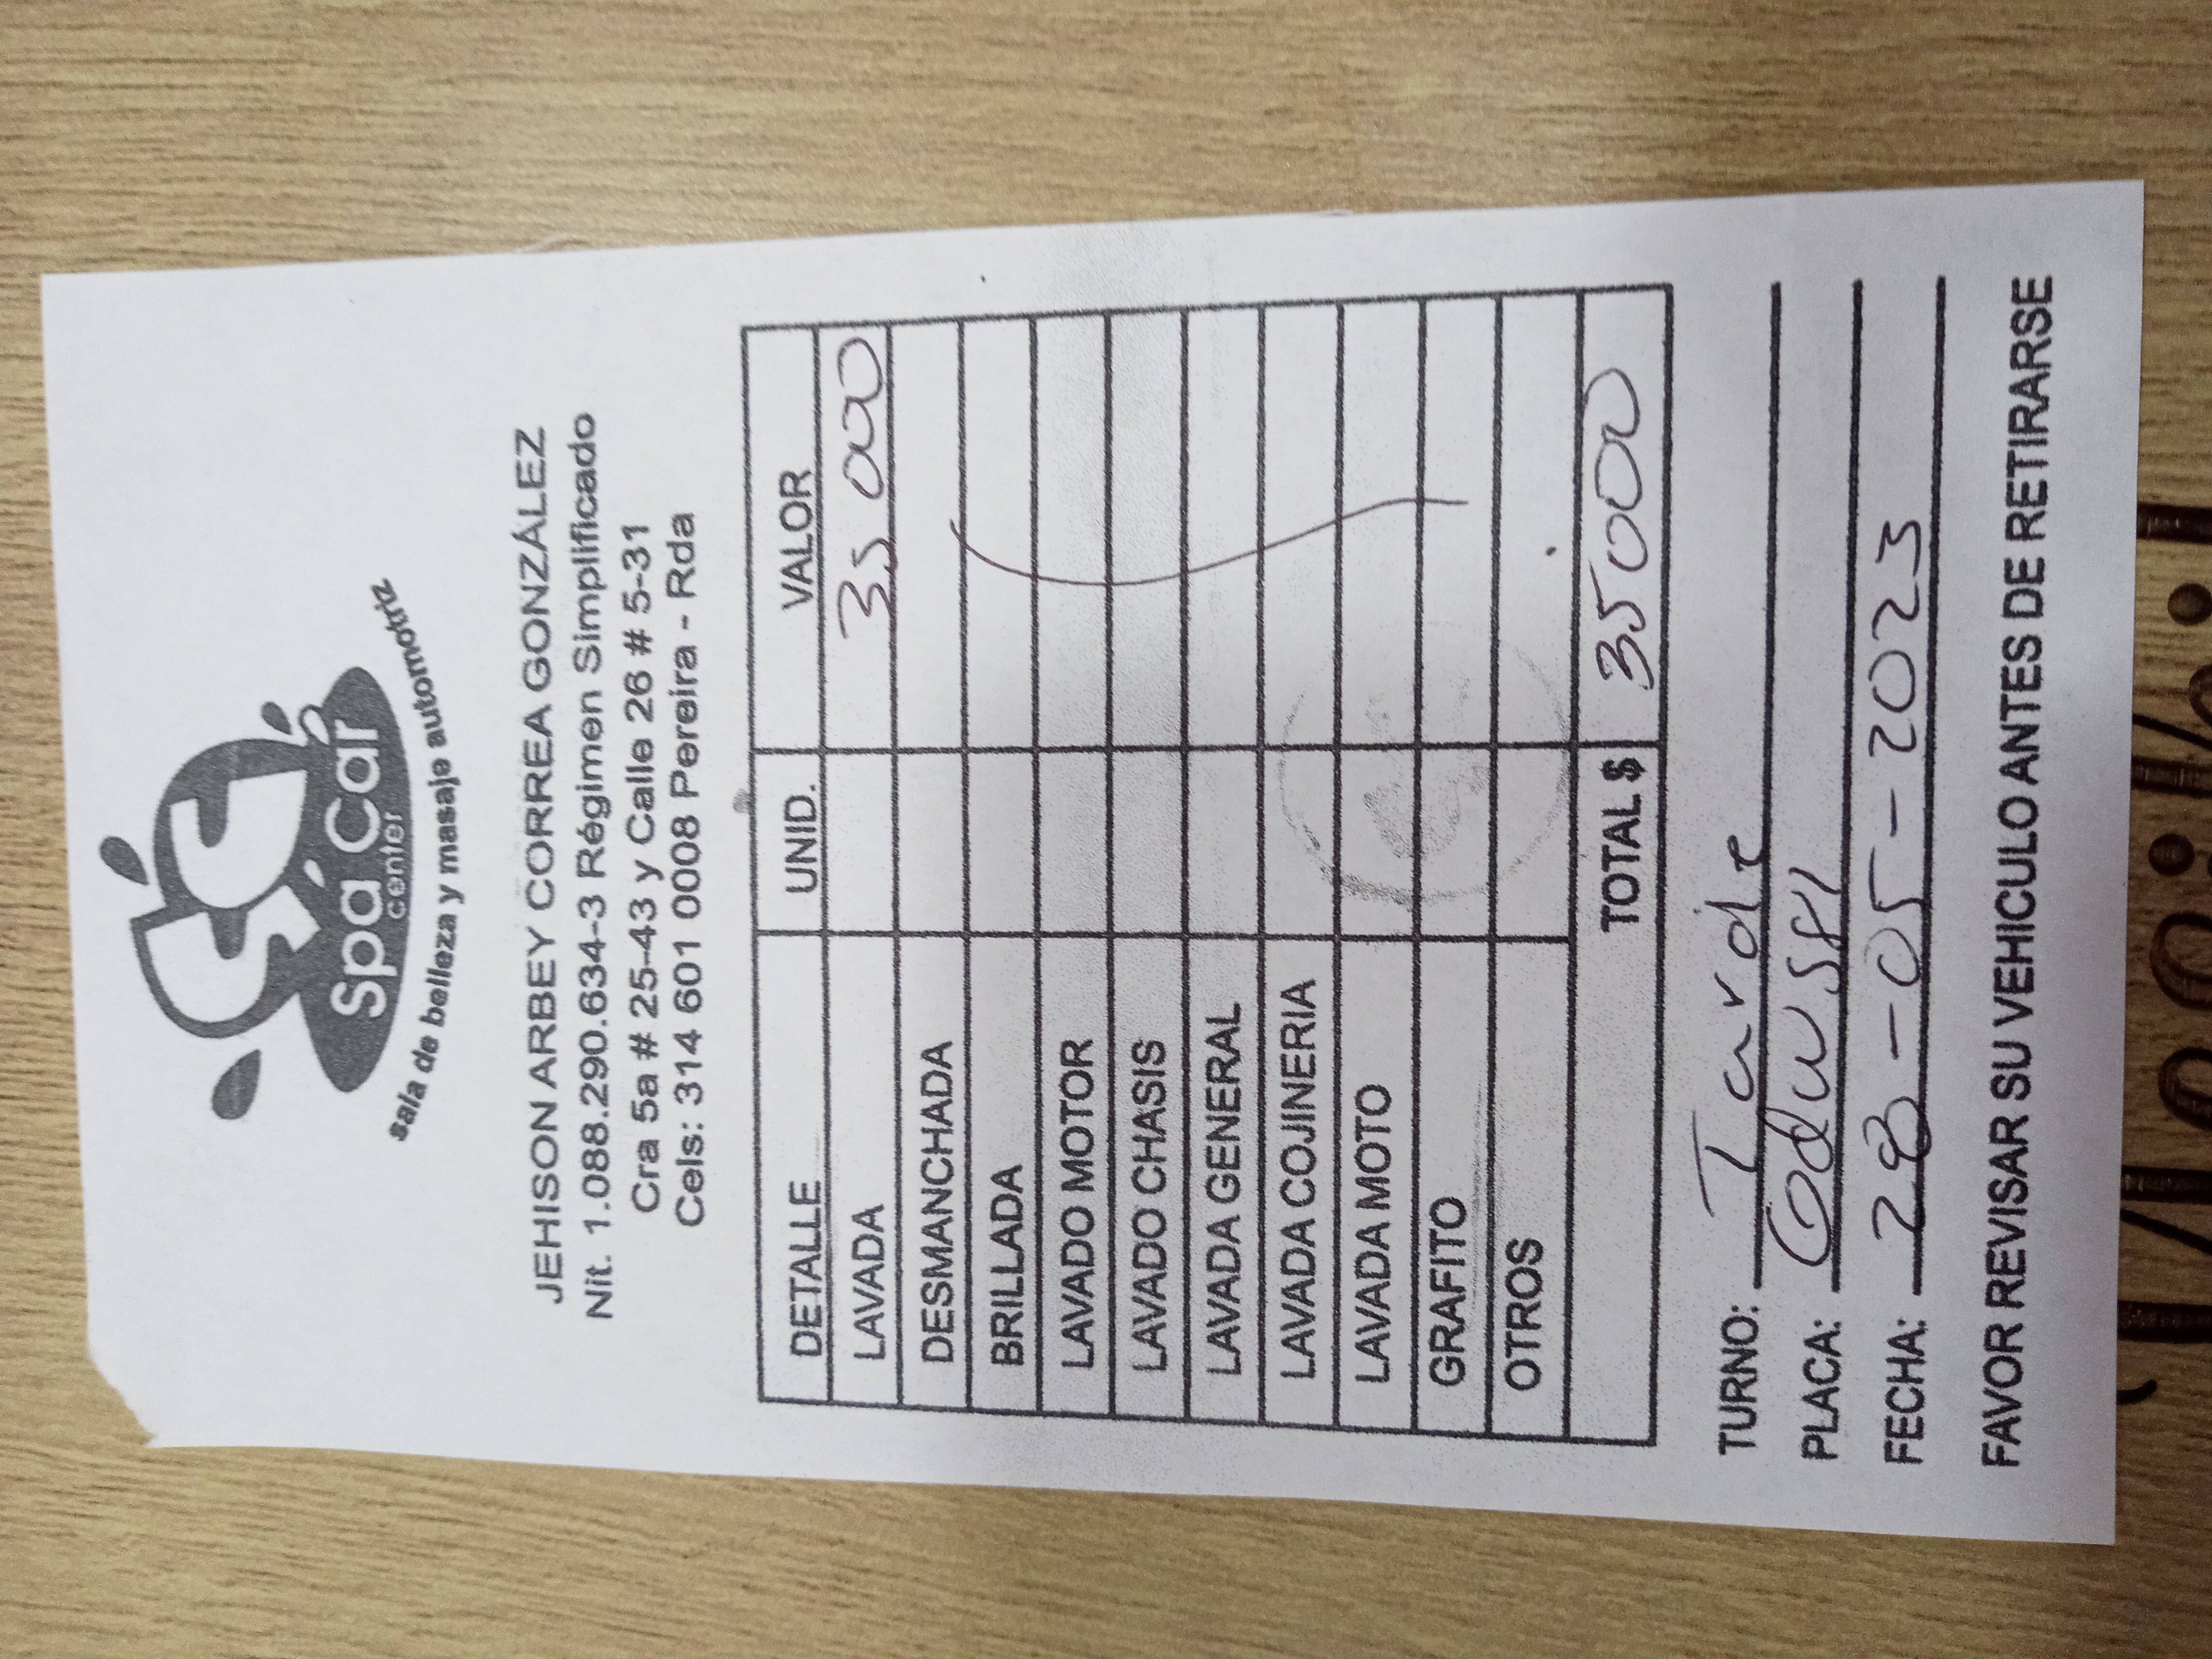 Spa Car
center
sala de belleza y masaje automotriz
JEHISON ARBEY CORREA GONZÁLEZ
Nit. 1.088.290.634-3 Régimen Simplificado
Cra 5a # 25-43 y Calle 26 # 5-31
Cels: 314 601 0008 Pereira - Rda
DETALLE UNID. VALOR
LAVADA 35 000
DESMANCHADA
BRILLADA
LAVADO MOTOR
LAVADO CHASIS
LAVADA GENERAL
LAVADA COJINERIA
LAVADA MOTO
GRAFITO
OTROS
TOTAL $ 35000
TURNO: Tarde
PLACA:
FECHA: 28-05-2023
FAVOR REVISAR SU VEHICULO ANTES DE RETIRARSE